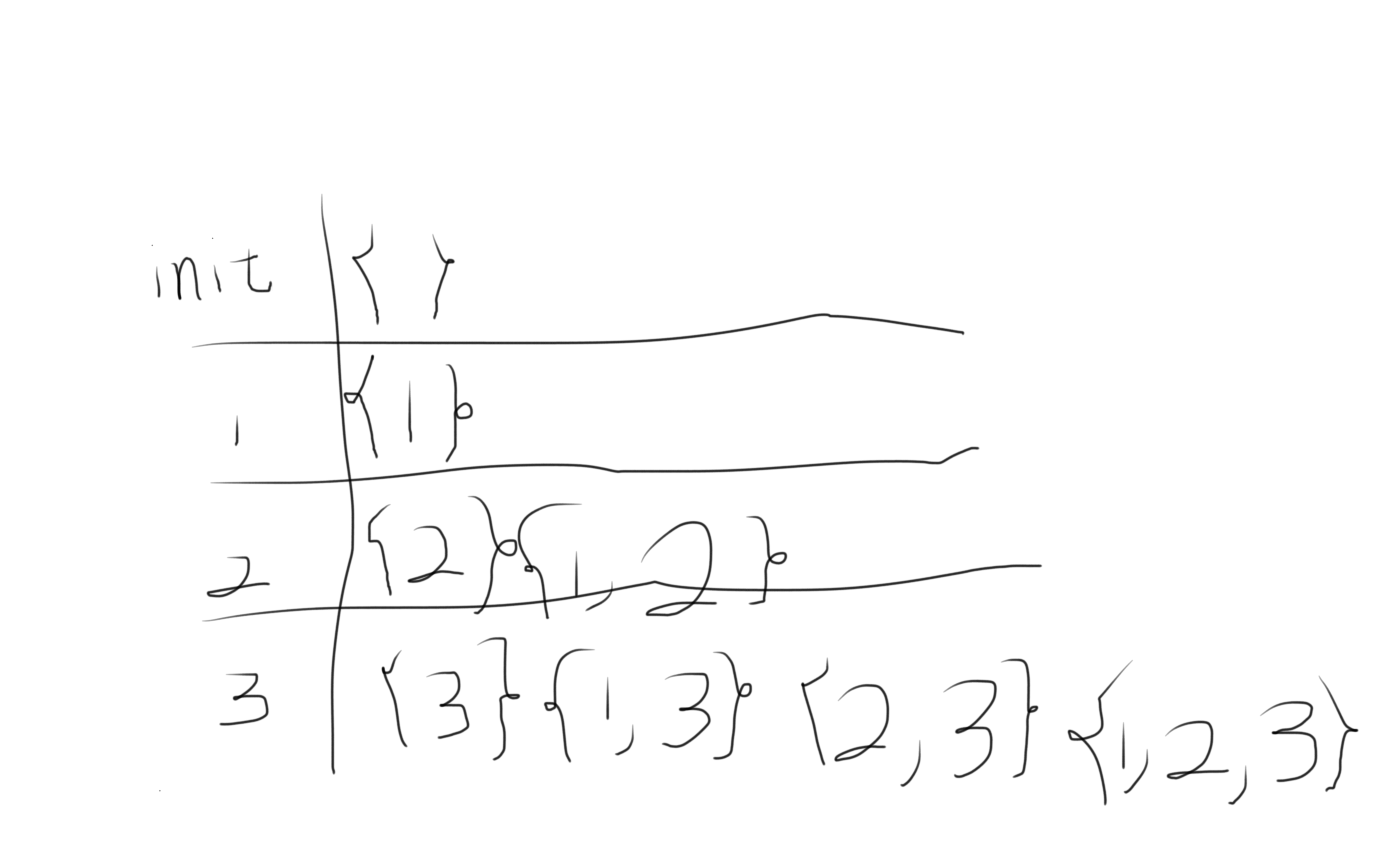 init { }
1 {1}
2 {2} {1,2}
3 {3} {1,3} {2,3} {1,2,3}